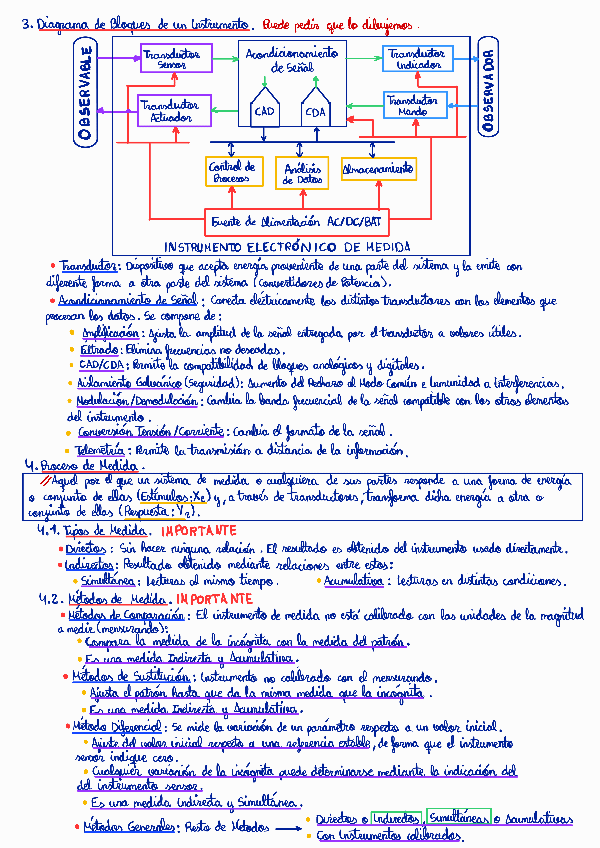 3. Diagrama de Bloques de un Instrumento. Puede pedir que lo dibujemos.
OBSERVABLE
Transductor
Sensor
Acondicionamiento
de Señal
Transductor
Indicador
OBSERVADOR
Transductor
Actuador
CAD
CDA
Transductor
Mando
Control de
Procesos
Análisis
de Datos
Almacenamiento
Fuente de Alimentación AC/DC/BAT
INSTRUMENTO ELECTRÓNICO DE MEDIDA
• Transductor: Dispositivo que acepta energía proveniente de una parte del sistema y la emite con
diferente forma a otra parte del sistema (Convertidores de Potencia).
• Acondicionamiento de Señal: Conecta eléctricamente los distintos transductores con los elementos que
procesan los datos. Se compone de:
• Amplificación: Ajusta la amplitud de la señal entregada por el transductor a valores útiles.
• Filtrado: Elimina frecuencias no deseadas.
• CAD/CDA: Permite la compatibilidad de bloques analógicos y digitales.
• Aislamiento Galvánico (Seguridad): Aumento del Rechazo al Modo Común e Inmunidad a Interferencias.
• Modulación/Demodulación: Cambia la banda frecuencial de la señal compatible con los otros elementos
del instrumento.
• Conversión Tensión/Corriente: Cambia el formato de la señal.
• Telemetría: Permite la transmisión a distancia de la información.
4. Proceso de Medida.
//Aquel por el que un sistema de medida o cualquiera de sus partes responde a una forma de energía
o conjunto de ellas (Estímulos: Xe) y, a través de transductores, transforma dicha energía a otra o
conjunto de ellas (Respuesta: Yr).
4.1. Tipos de Medida. IMPORTANTE
• Directos: Sin hacer ninguna relación. El resultado es obtenido del instrumento usado directamente.
• Indirectos: Resultado obtenido mediante relaciones entre estos:
• Simultánea: Lecturas al mismo tiempo. • Acumulativa: Lecturas en distintas condiciones.
4.2. Métodos de Medida. IMPORTANTE
• Métodos de Comparación: El instrumento de medida no está calibrado con las unidades de la magnitud
a medir (mensurando):
• Compara la medida de la incógnita con la medida del patrón.
• Es una medida Indirecta y Acumulativa.
• Métodos de Sustitución: Instrumento no calibrado con el mensurando.
• Ajusta el patrón hasta que da la misma medida que la incógnita.
• Es una medida Indirecta y Acumulativa.
• Método Diferencial: Se mide la variación de un parámetro respecto a un valor inicial.
• Ajuste del valor inicial respecto a una referencia estable, de forma que el instrumento
sensor indique cero.
• Cualquier variación de la incógnita puede determinarse mediante la indicación del
del instrumento sensor.
• Es una medida Indirecta y Simultánea.
• Métodos Generales: Resto de Métodos → • Directos o Indirectos, Simultáneas o Acumulativas
• Con Instrumentos calibrados.